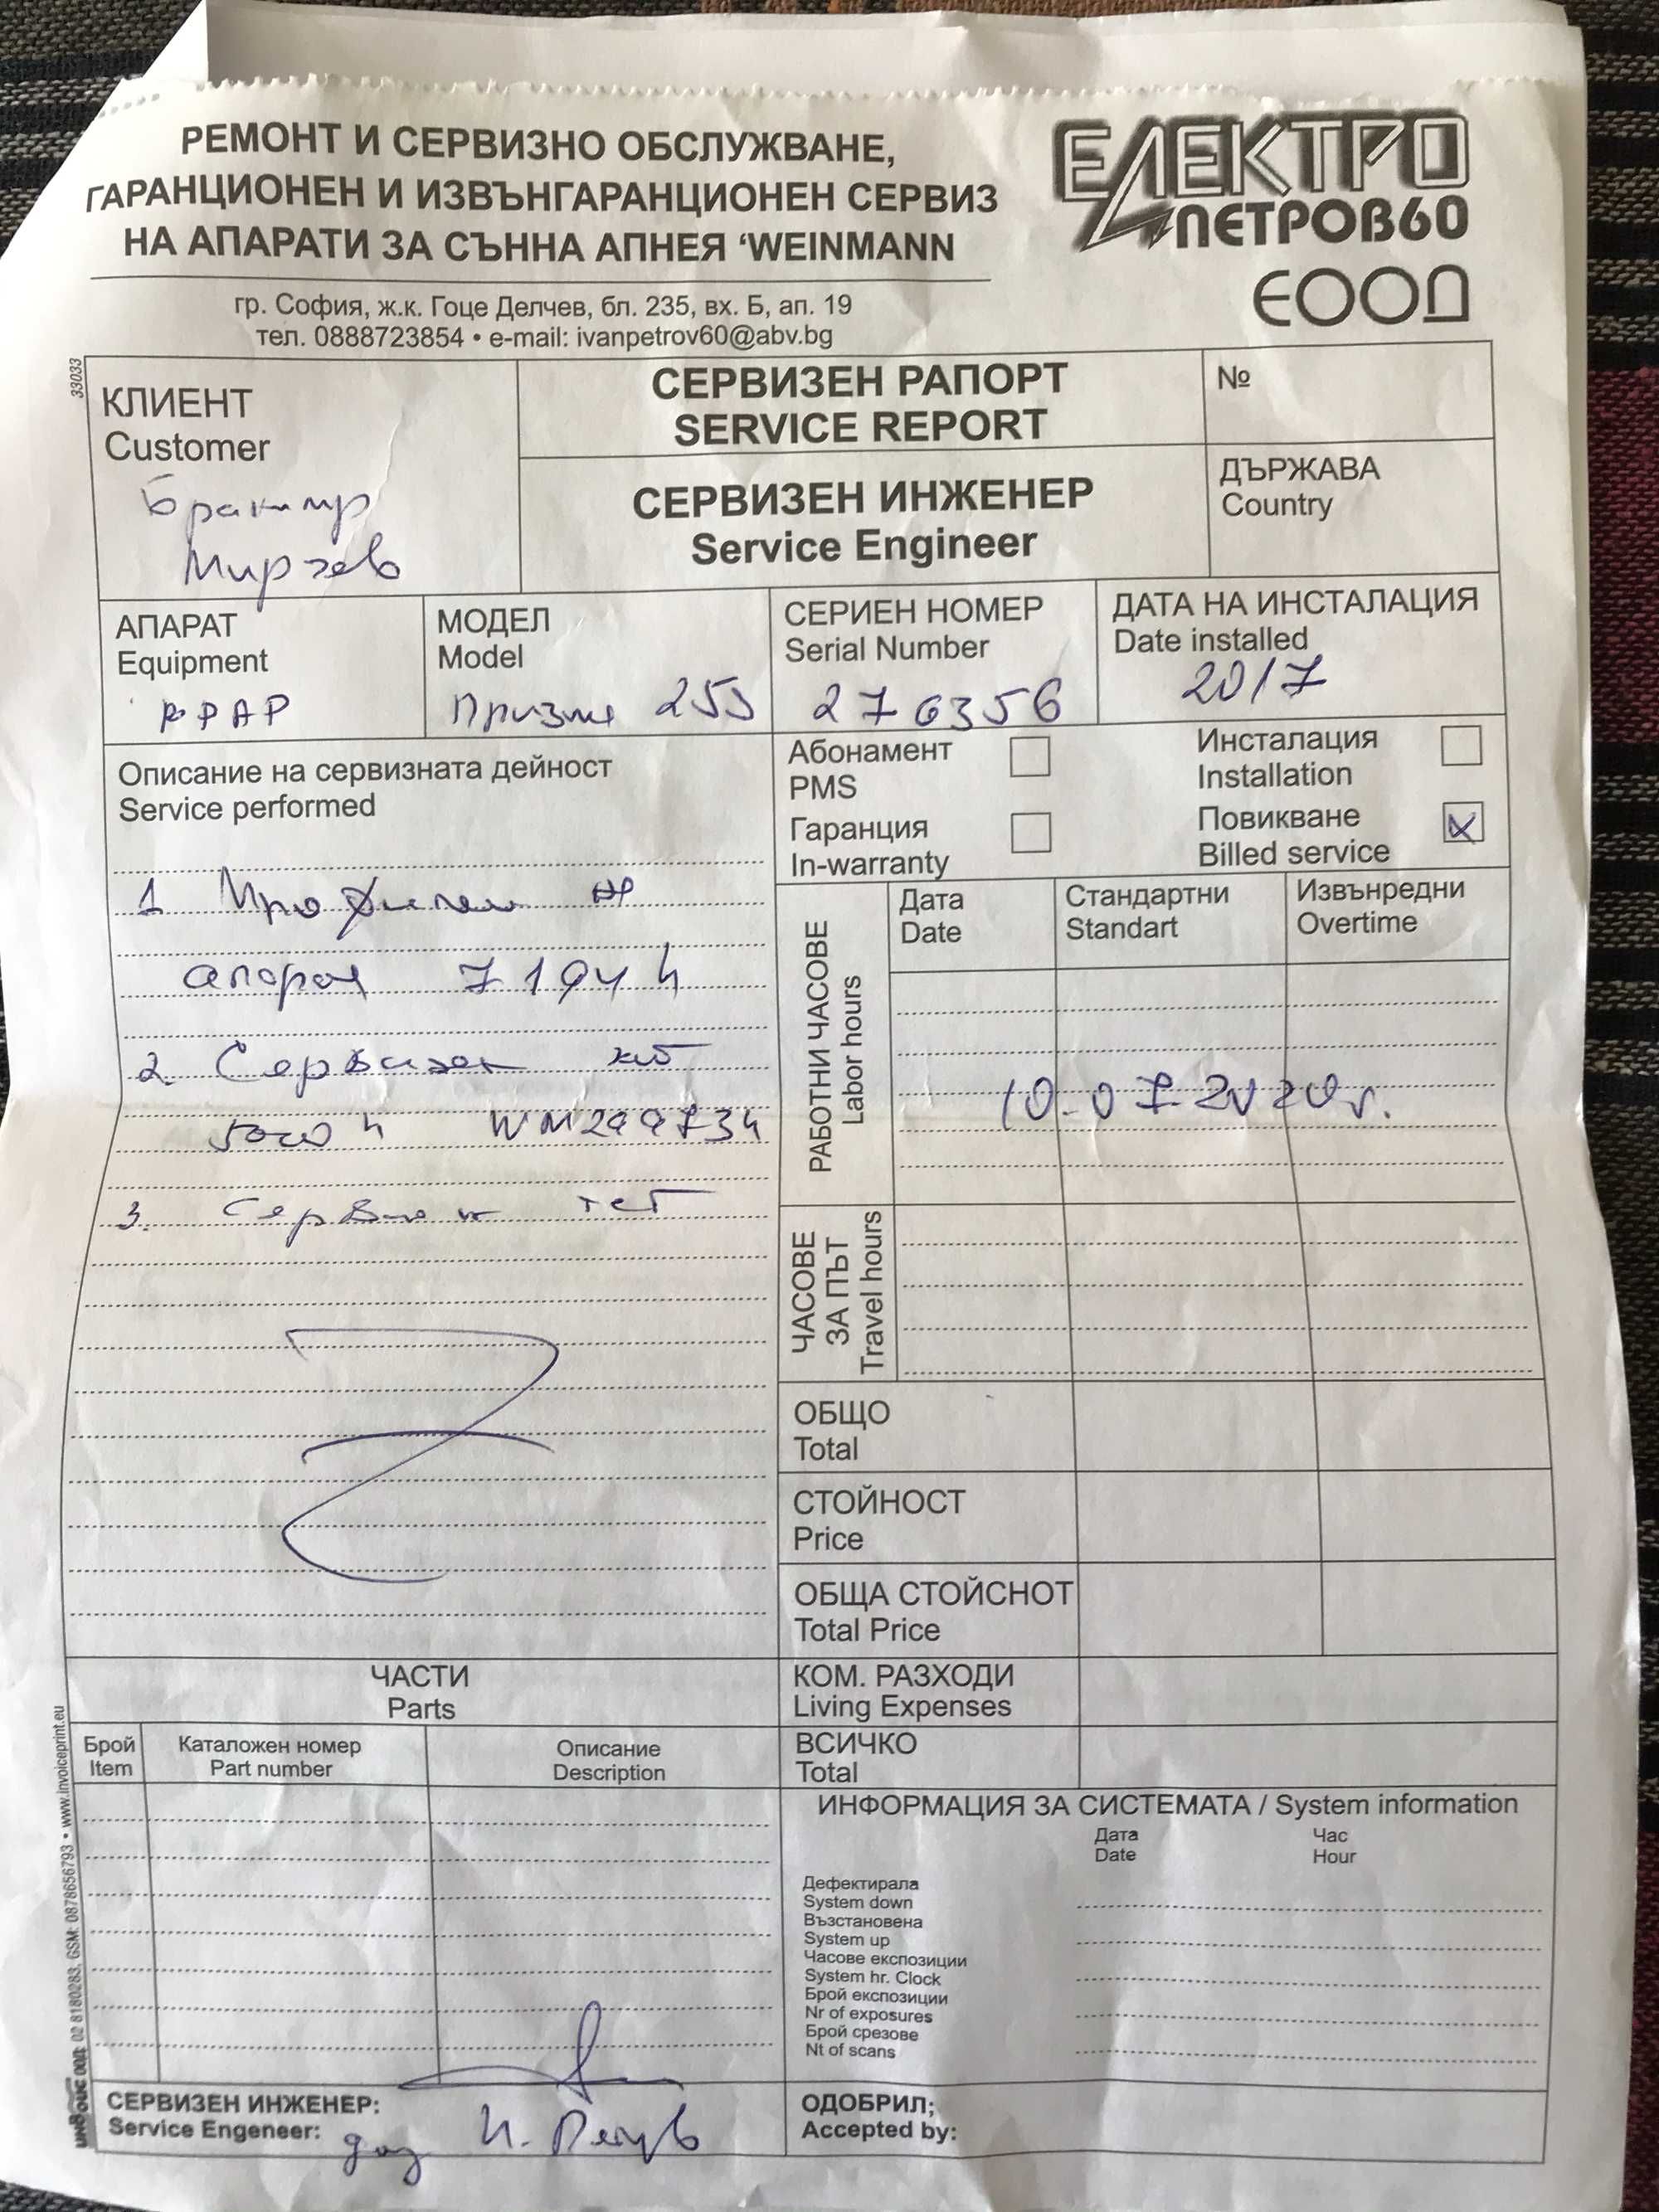 РЕМОНТ И СЕРВИЗНО ОБСЛУЖВАНЕ,
ГАРАНЦИОНЕН И ИЗВЪНГАРАНЦИОНЕН СЕРВИЗ
НА АПАРАТИ ЗА СЪННА АПНЕЯ ‘WEINMANN
ЕЛЕКТРО
ПЕТРОВ60
ЕООД
гр. София, ж.к. Гоце Делчев, бл. 235, вх. Б, ап. 19
тел. 0888723854 • e-mail: ivanpetrov60@abv.bg
33033
КЛИЕНТ
Customer
Мирчев
СЕРВИЗЕН РАПОРТ
SERVICE REPORT
№
СЕРВИЗЕН ИНЖЕНЕР
Service Engineer
ДЪРЖАВА
Country
АПАРАТ
Equipment
МОДЕЛ
Model
Призма
СЕРИЕН НОМЕР
Serial Number
276356
ДАТА НА ИНСТАЛАЦИЯ
Date installed
2017
Описание на сервизната дейност
Service performed
1
7194 h
2. Сервизен
WM299734
3. Сервизен тест
Абонамент
PMS
Инсталация
Installation
Гаранция
In-warranty
Повикване
Billed service
РАБОТНИ ЧАСОВЕ
Labor hours
Дата
Date
Стандартни
Standart
Извънредни
Overtime
10.07.2020г.
ЧАСОВЕ
ЗА ПЪТ
Travel hours
ОБЩО
Total
СТОЙНОСТ
Price
ОБЩА СТОЙСНОТ
Total Price
ЧАСТИ
Parts
КОМ. РАЗХОДИ
Living Expenses
Брой
Item
Каталожен номер
Part number
Описание
Description
ВСИЧКО
Total
ИНФОРМАЦИЯ ЗА СИСТЕМАТА / System information
Дата
Date
Час
Hour
Дефектирала
System down
Възстановена
System up
Часове експозиции
System hr. Clock
Брой експозиции
Nr of exposures
Брой срезове
Nt of scans
02 8180283, GSM: 0878656793 • www.invoiceprint.eu
СЕРВИЗЕН ИНЖЕНЕР:
Service Engeneer:
И. Петров
ОДОБРИЛ;
Accepted by: